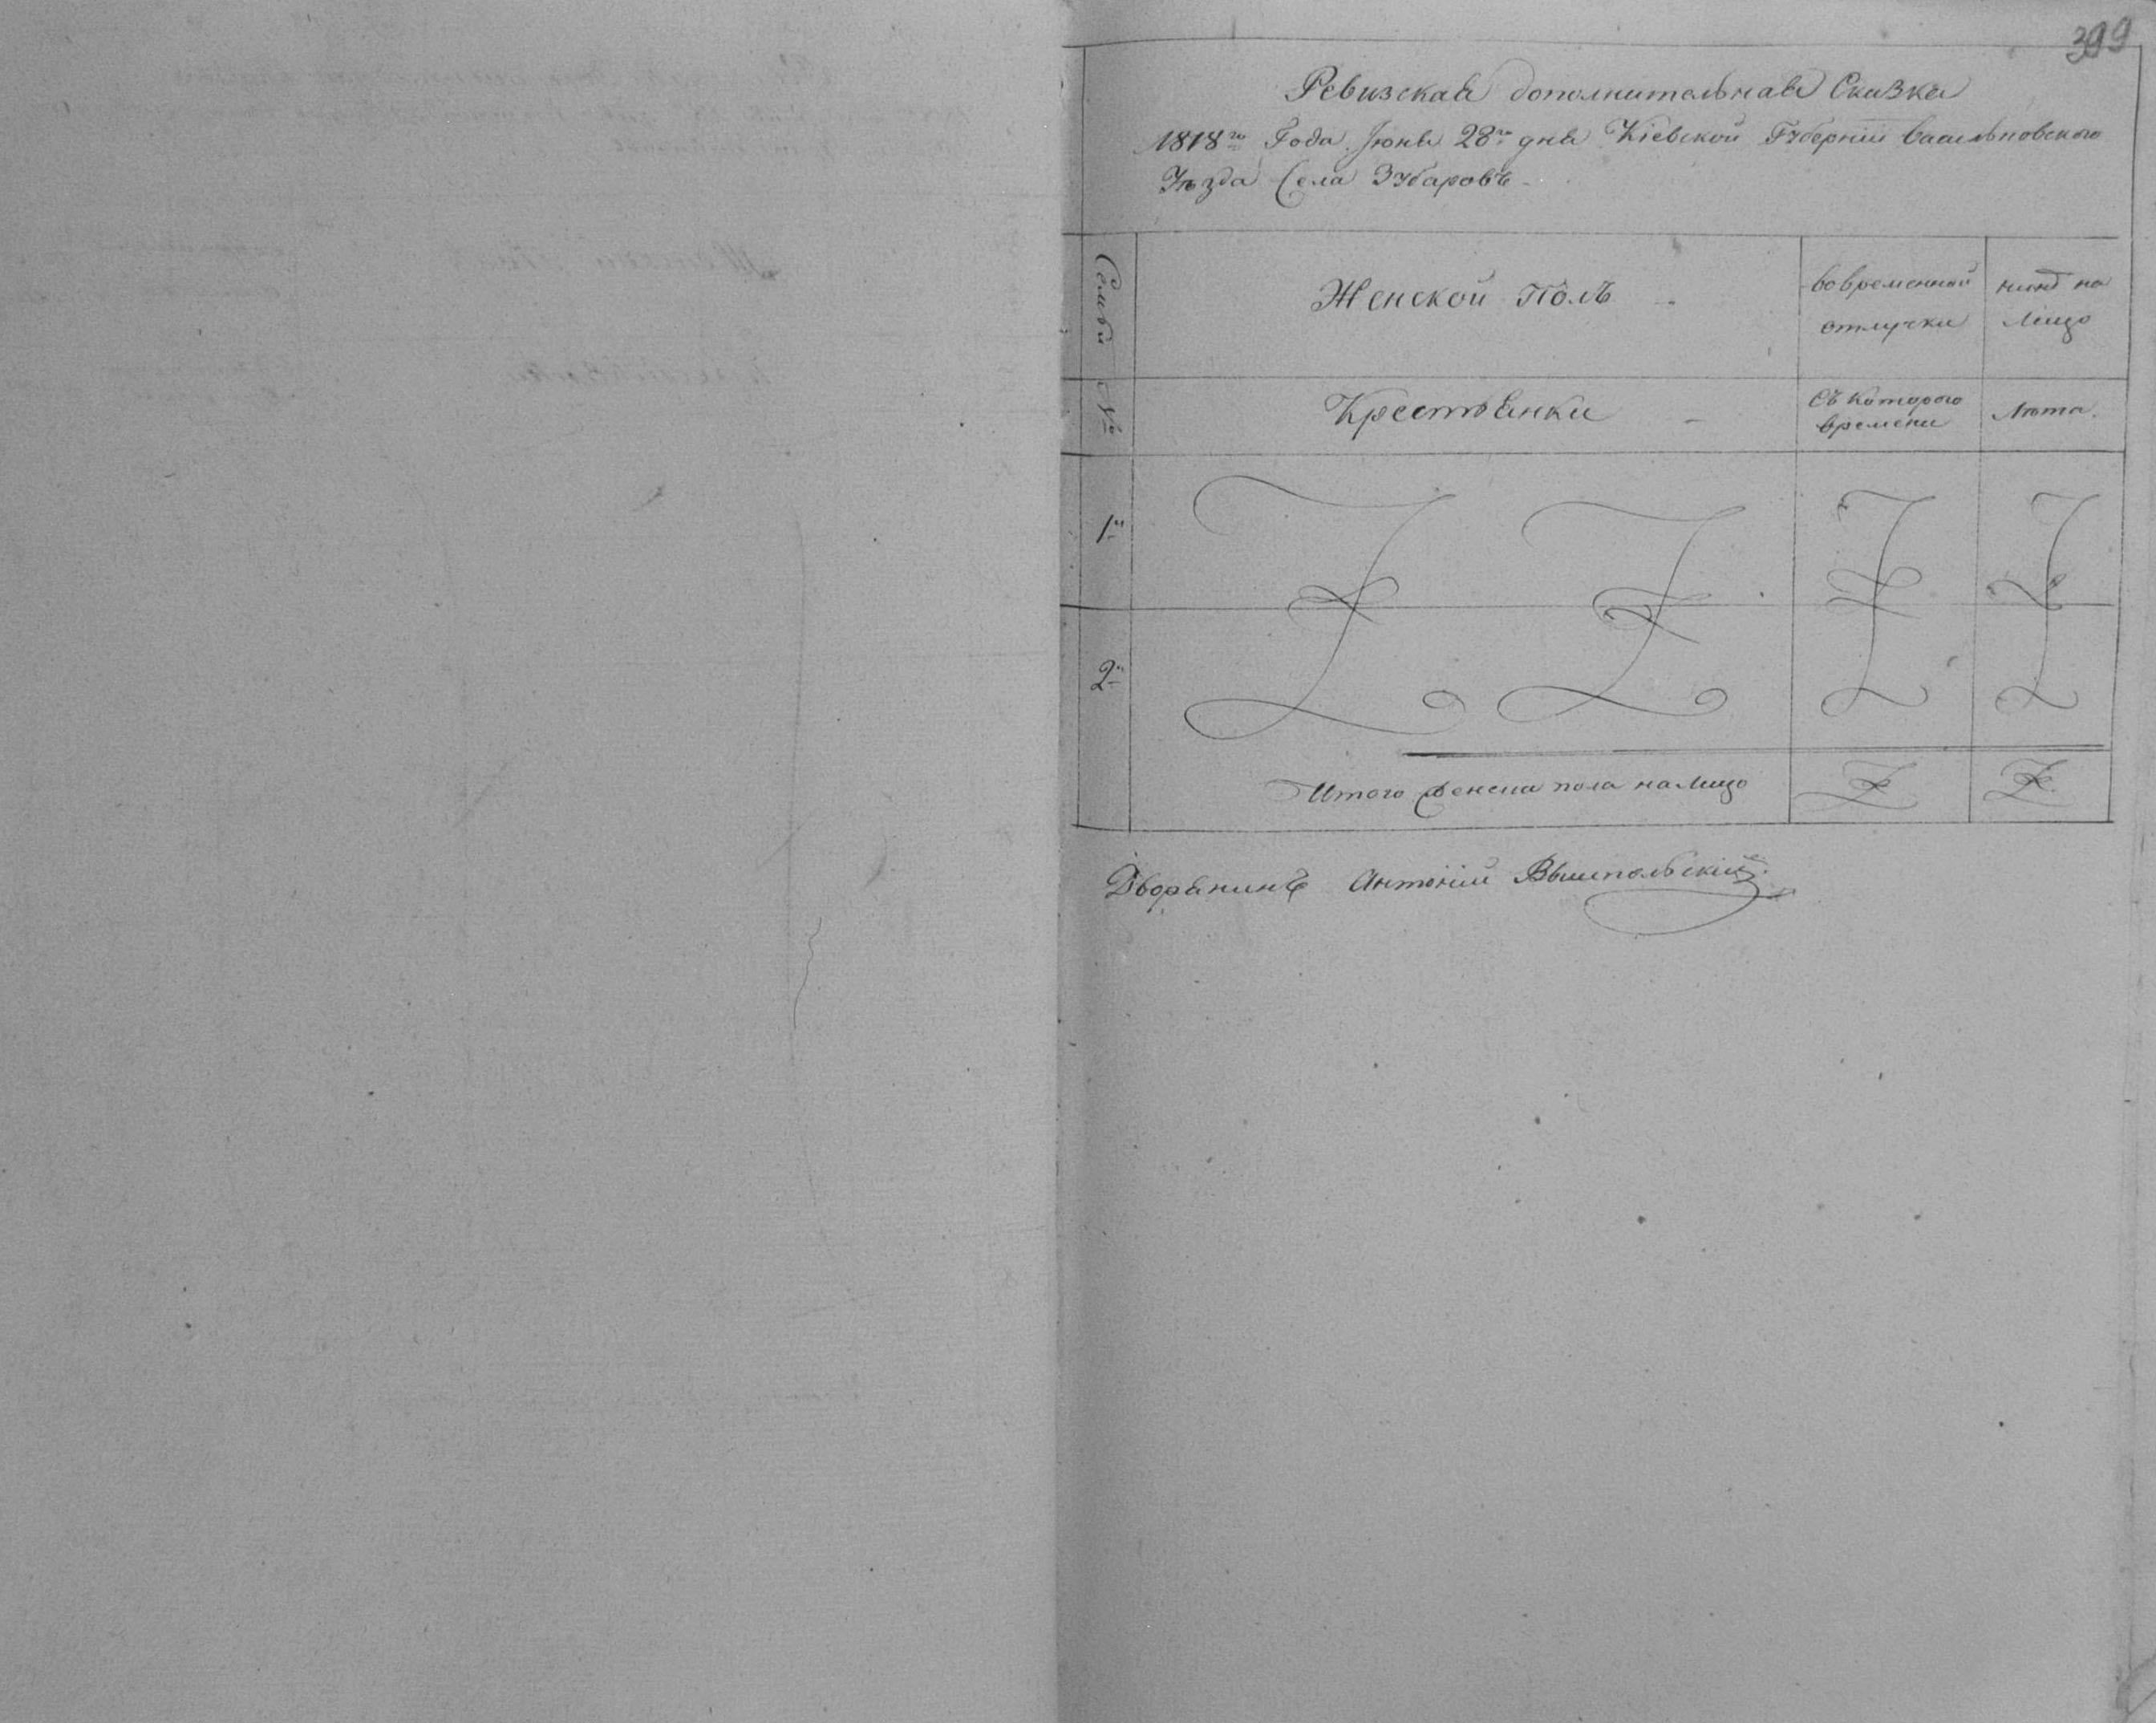 399
Ревизская дополнительная Сказка
1818го Года Июня 28го дня Кіевской Губерніи Васильковского
Уѣзда Села Зубаровъ
Женской Полъ
вовременной отлучки
нынѣ на Лицо
Семьи №
Крестьянки
съ Которого времени
Лѣта.
1й
2й
Итого женска пола наЛицо
Дворянинъ Антоній Вышпольскій